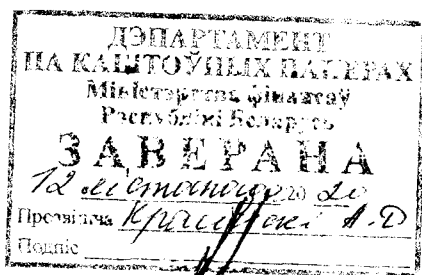 ДЭПАРТАМЕНТ
ПА КАШТОЎНЫХ ПАПЕРАХ
Міністэрства фінансаў
Рэспублікі Беларусь
ЗАВЕРАНА
12 лістапада 20 20
Прозвішча А.Д
Подпіс